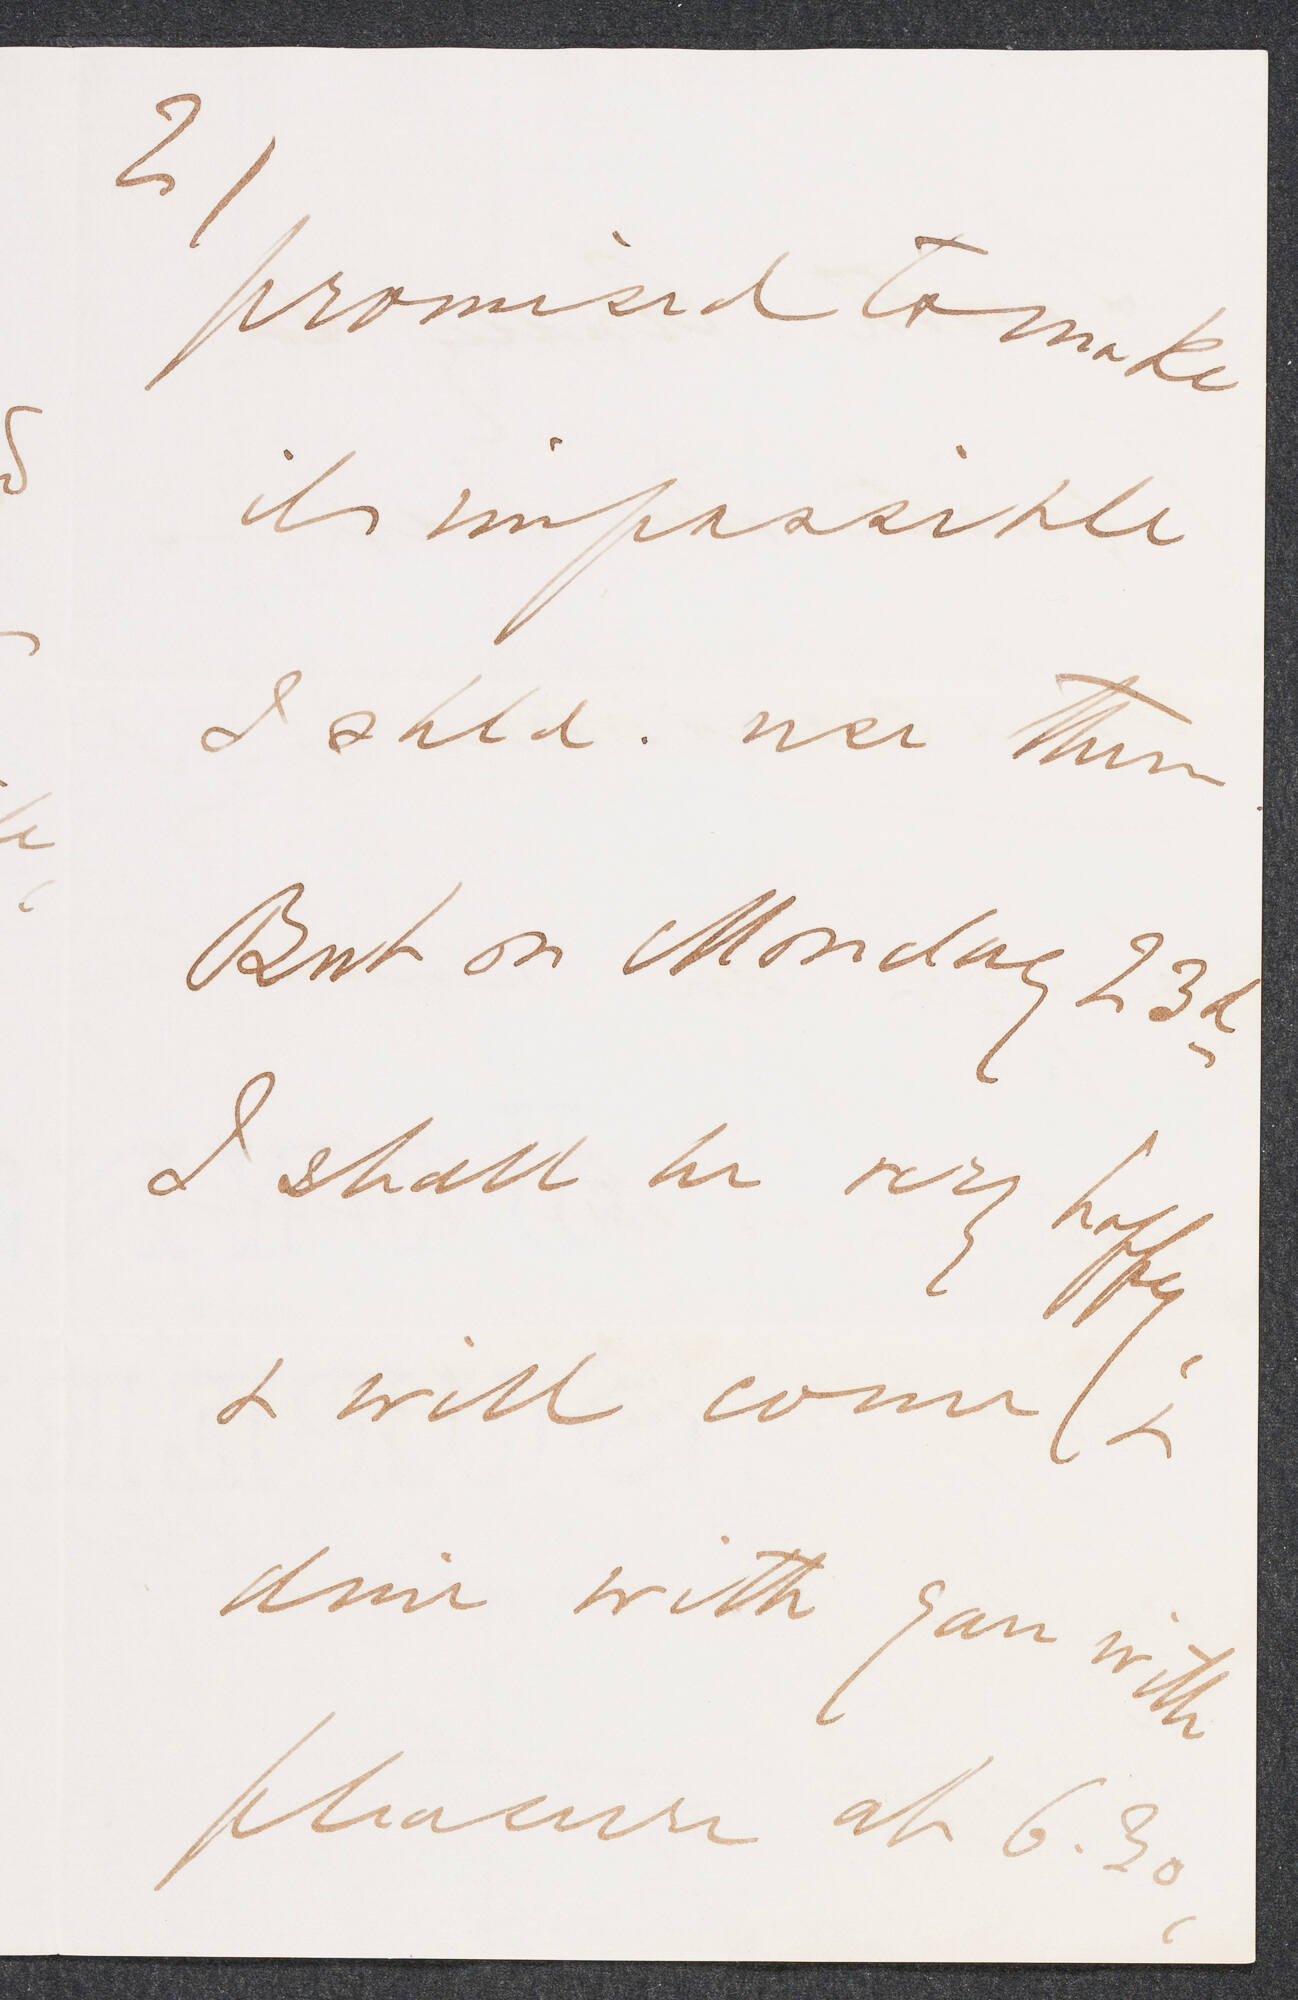 2/
promised to make
it impossible
I shld. use them.
But on Monday 23d
I shall be very happy
& will come &
dine with you with
pleasure at 6.30,